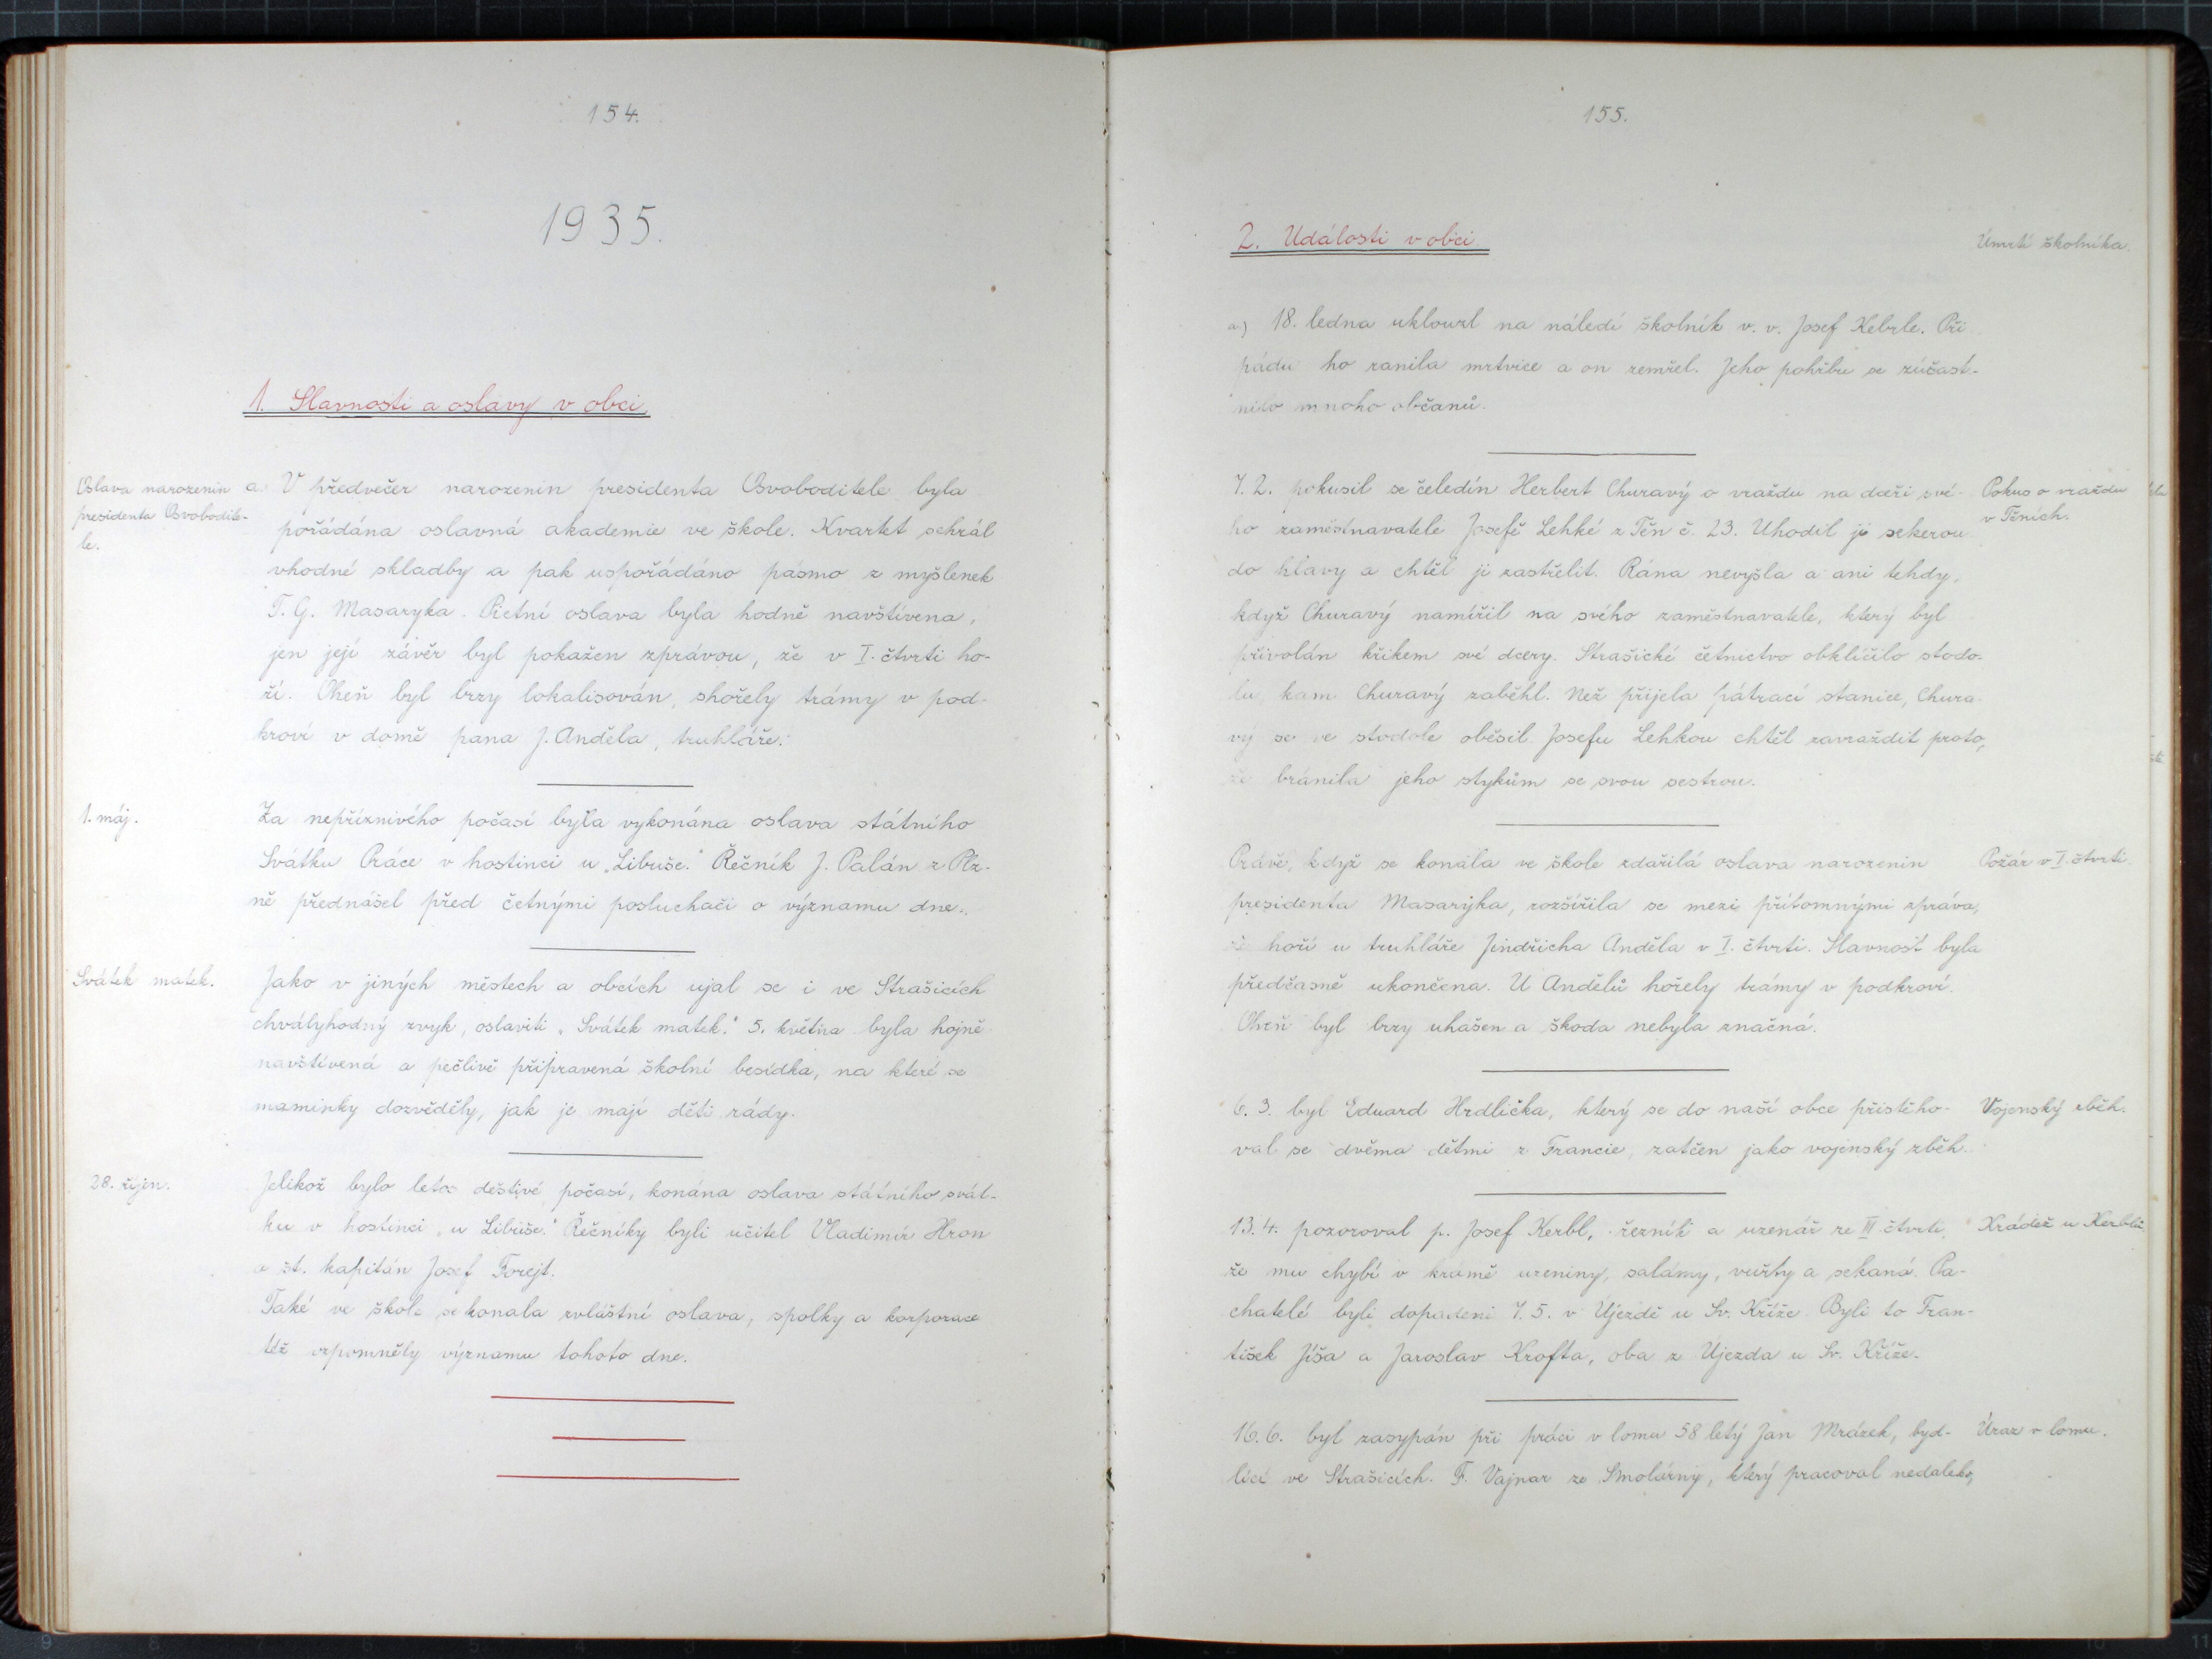 154.
1935.
1. Slavnosti a oslavy v obci.
Oslava narozenin
presidenta Osvobodite-
le.
a. V předvečer narozenin presidenta Osvoboditele byla
pořádána oslavná akademie ve škole. Kvartet sehrál
vhodné skladby a pak uspořádáno pásmo z myšlenek
T. G. Masaryka. Pietní oslava byla hodně navštívena,
jen její závěr byl pokažen zprávou, že v I. čtvrti ho-
ří. Oheň byl brzy lokalisován, shořely trámy v pod-
kroví v domě pana J. Anděla, truhláře.
1. máj.
Za nepříznivého počasí byla vykonána oslava státního
Svátku Práce v hostinci u „Libuše." Řečník J. Palán z Plz-
ně přednášel před četnými posluchači o významu dne.
Svátek matek.
Jako v jiných městech a obcích ujal se i ve Strašicích
chvályhodný zvyk, oslaviti „Svátek matek." 5. května byla hojně
navštívená a pečlivě připravená školní besídka, na které se
maminky dozvěděly, jak je mají děti rády.
28. říjen.
Jelikož bylo letos deštivé počasí, konána oslava státního svát-
ku v hostinci „u Libuše." Řečníky byli učitel Vladimír Hron
a št. kapitán Josef Forejt.
Také ve škole se konala zvláštní oslava, spolky a korporace
též vzpomněly významu tohoto dne.
155.
2. Události v obci.
Úmrtí školníka.
a) 18. ledna uklouzl na náledí školník v. v. Josef Kebrle. Při
pádu ho ranila mrtvice a on zemřel. Jeho pohřbu se zúčast-
nilo mnoho občanů.
7. 2. pokusil se čeledín Herbert Churavý o vraždu na dceři své-
Pokus o vraždu
v Těních.
ho zaměstnavatele Josefě Lehké z Těn č. 23. Uhodil ji sekerou
do hlavy a chtěl ji zastřelit. Rána nevyšla a ani tehdy,
když Churavý namířil na svého zaměstnavatele, který byl
přivolán křikem své dcery. Strašické četnictvo obklíčilo stodo-
lu, kam Churavý zaběhl. Než přijela pátrací stanice, Chura-
vý se ve stodole oběsil. Josefu Lehkou chtěl zavraždit proto,
že bránila jeho stykům se svou sestrou.
Právě, když se konala ve škole zdařilá oslava narozenin
Požár v I. čtvrti.
presidenta Masaryka, rozšířila se mezi přítomnými zpráva,
že hoří u truhláře Jindřicha Anděla v I. čtvrti. Slavnost byla
předčasně ukončena. U Andělů hořely trámy v podkroví.
Oheň byl brzy uhašen a škoda nebyla značná.
6. 3. byl Eduard Hrdlička, který se do naší obce přistěho-
Vojenský zběh.
val se dvěma dětmi z Francie, zatčen jako vojenský zběh.
13. 4. pozoroval p. Josef Kerbl, řezník a uzenář ze III čtvrti,
Krádež u Kerblů.
že mu chybí v krámě uzeniny, salámy, vuřty a sekaná. Pa-
chatelé byli dopadeni 7. 5. v Újezdě u Sv. Kříže. Byli to Fran-
tišek Jíša a Jaroslav Krofta, oba z Újezda u Sv. Kříže.
16. 6. byl zasypán při práci v lomu 58 letý Jan Mrázek, byd-
Úraz v lomu.
lící ve Strašicích. F. Vajnar ze Smolárny, který pracoval nedaleko,